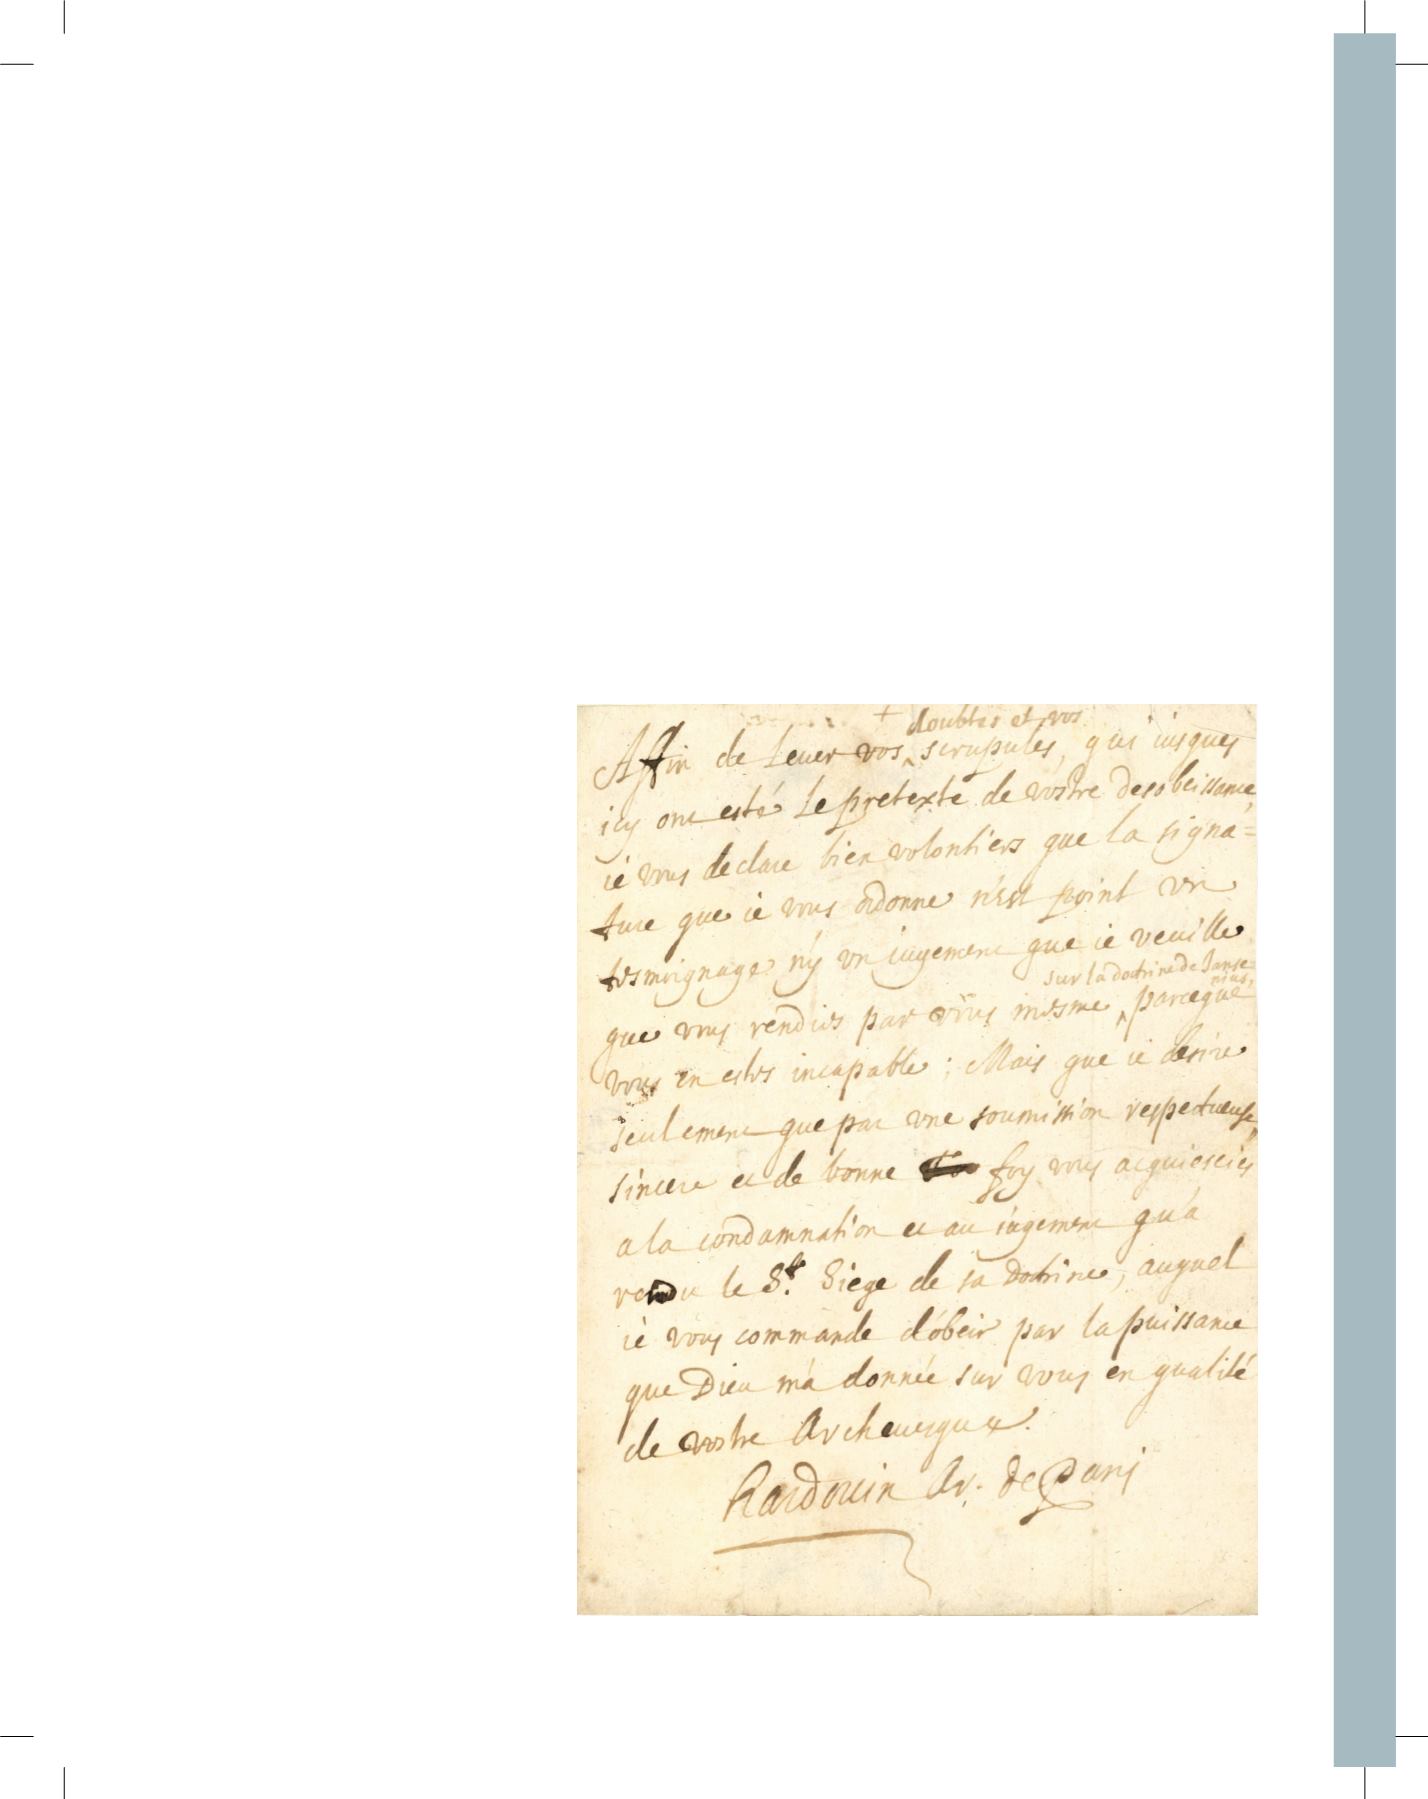 + doubtes et vos
Affin de Lever vos ^ scrupules, qui iusques
icy ont esté Le pretexte de vostre desobeissance,
ie vous declare bien volontiers que la signa=
ture que ie vous ordonne n'est point vn
tesmoignage ny vn iugement que ie veuille
sur la doctrine de Janse
nius,
que vous rendies par vous mesme ^ parceque
vous en estes incapable ; Mais que ie desire
seulement que par vne soumission respectueuse,
sincere et de bonne foy vous acquiesciés
a la condamnation et au iugement qu'a
rendu le St. Siege de sa Doctrine, auquel
ie vous commande d'obeir par la puissance
que Dieu m'a donnée sur vous en qualité
de vostre Archeuesque.
Hardouin Ar. de Paris